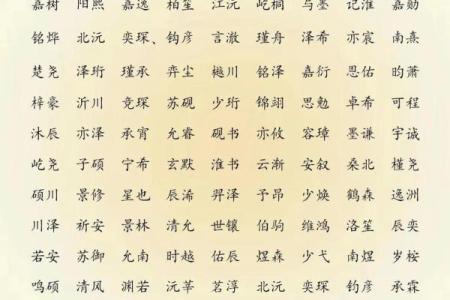 嘉树 阳熙 嘉逸 柏笙 江沅 屹桐 与墨 记淮 嘉勋
铭烨 北沅 奕琛、 钧彦 言澈 瑾舟 泽希 亦宸 南熹
楚尧 泽珩 瑾承 弈尘 樾川 铭泽 嘉衍 恩佑 昀萧
梓豪 沂川 竞琛 苏砚 少珩 锦翊 思勉 卓希 可程
沐辰 亦泽 承宵 允睿 砚书 亦攸 容璋 墨谦 宇诚
屹尧 子硕 宁希 玄默 淮书 云渐 安叙 桑北 槿尧
硕川 景修 星也 辰浠 羿泽 予昂 少焕 鹤森 逸洲
川泽 祈安 景林 清允 世镶 伯驹 维鸿 洛笙 辰奕
若安 苏御 允南 时越 佑辰 煜森 少弋 南煜 岁桉
鸣硕 清风 渊若 沅莘 茗淳 北沅 奕琛 钧彦 承霖